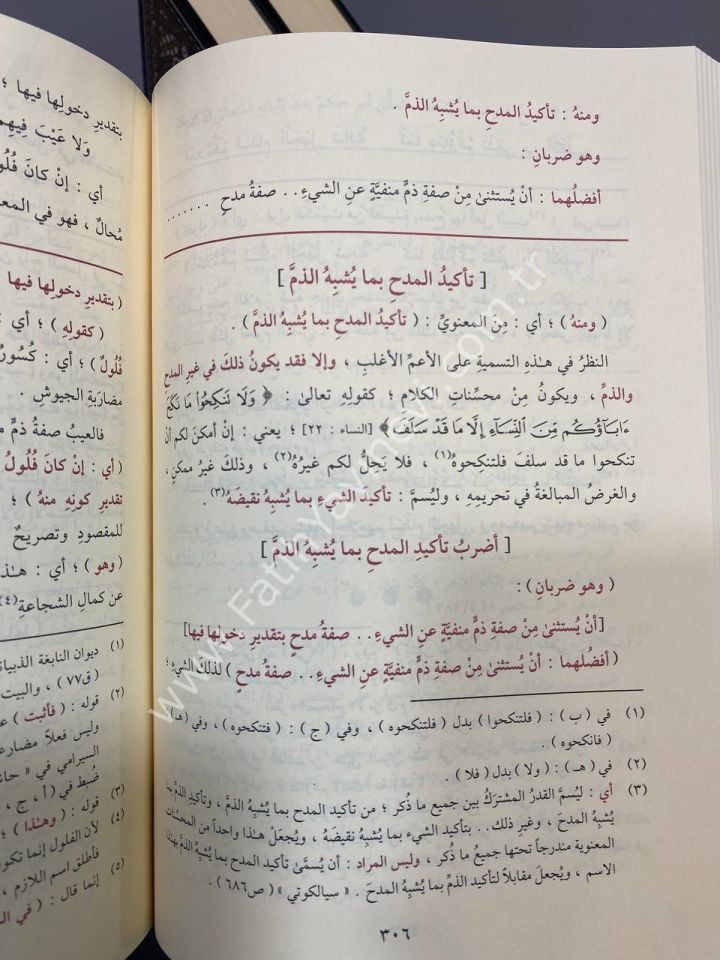 ومنهُ : تأكيدُ المدحِ بما يُشبِهُ الذمَّ .
وهو ضربانِ :
أفضلُهما : أنْ يُستثنىٰ مِنْ صفةِ ذمٍّ منفيَّةٍ عنِ الشيءِ . . صفةُ مدحٍ . . . . . . .
[ تأكيدُ المدحِ بما يُشبِهُ الذمَّ ]
( ومنهُ ) ؛ أي : مِنَ المعنويِّ : ( تأكيدُ المدحِ بما يُشبِهُ الذمَّ ) .
النظرُ في هـٰذهِ التسميةِ على الأعمِّ الأغلبِ ، وإلا فقد يكونُ ذلكَ في غيرِ المدحِ
والذمِّ ، ويكونُ مِنْ محسِّناتِ الكلامِ ؛ كقولِهِ تعالىٰ : ﴿ وَلَا تَنكِحُوا۟ مَا نَكَحَ
ءَابَآؤُكُم مِّنَ ٱلنِّسَآءِ إِلَّا مَا قَدْ سَلَفَ﴾ [النساء : ٢٢] ؛ يعني : إنْ أمكنَ لكم أنْ
تنكحوا ما قد سلفَ فلتنكحوهُ(١) ، فلا يَحِلُّ لكم غيرُهُ(٢) ، وذلكَ غيرُ ممكنٍ ،
والغرضُ المبالغةُ في تحريمِهِ ، وليُسمَّ : تأكيدَ الشيءِ بما يُشبِهُ نقيضَهُ(٣) .
[ أضربُ تأكيدِ المدحِ بما يُشبِهُ الذمَّ ]
( وهو ضربانِ ) :
[أنْ يُستثنىٰ مِنْ صفةِ ذمٍّ منفيَّةٍ عنِ الشيءِ . . صفةُ مدحٍ بتقديرِ دخولِها فيها]
( أفضلُهما : أنْ يُستثنىٰ مِنْ صفةِ ذمٍّ منفيَّةٍ عنِ الشيءِ . . صفةُ مدحٍ ) لذلكَ الشيءِ ؛
(١) في ( ب ) : ( فلتنكحوا ) بدل ( فلتنكحوه ) ، وفي ( ج ) : ( فتنكحوه ) ، وفي ( هـ )
( فانكحوه ) .
(٢) في ( هـ ) : ( ولا ) بدل ( فلا ) .
(٣) أي : ليُسمَّ القدرُ المشتركُ بين جميع ما ذُكر ؛ من تأكيد المدح بما يُشبِهُ الذمَّ ، وتأكيدِ الذمِّ بما
يُشبِهُ المدحَ ، وغيرِ ذلك . . بتأكيد الشيء بما يُشبِهُ نقيضَهُ ، ويُجعلُ هـٰذا واحداً من المحسِّنات
المعنوية مندرجاً تحتها جميعُ ما ذُكر ، وليس المراد : أن يُسمَّىٰ تأكيد المدح بما يُشبِهُ الذمَّ بهـٰذا
الاسم ، ويُجعلَ مقابلاً لتأكيد الذمِّ بما يُشبِهُ المدحَ . « سيالكوتي » ( ص٦٨٦ ) .
٣٠٦
بتقديرِ دخولِها فيها ؛
وَلا عَيْبَ فِيهِم
أي : إنْ كانَ فُلُو
مُحالٌ ، فهو في المع
( بتقديرِ دخولِها فيها
( كقولِهِ ) ؛ أي :
فُلُولٌ ) ؛ أي : كُسُورٌ
مضاربَةِ الجيوشِ .
فالعيبُ صفةُ ذمٍّ م
( أي : إنْ كانَ فُلُولُ
تقديرِ كونِهِ منهُ ) ؛
للمقصودِ وتصريحٌ
( وهو ) ؛ أي : هـٰذا
عن كمالِ الشجاعةِ(٤)
(١) ديوان النابغة الذبيا
(ق٧٧) ، والبيت
(٢) قوله : ( فأثبت ) ع
وليس فعلاً مضارعاً
السيرامي في « حا
ضُبط في ( أ ، ج ،
(٣) قوله : ( وهـٰذا )
(٤) لأن الفلول إنما تكو
فأطلق اسم اللازم ،
(٥) إنما قال : ( في ال
www.FatihYayinevi.com.tr